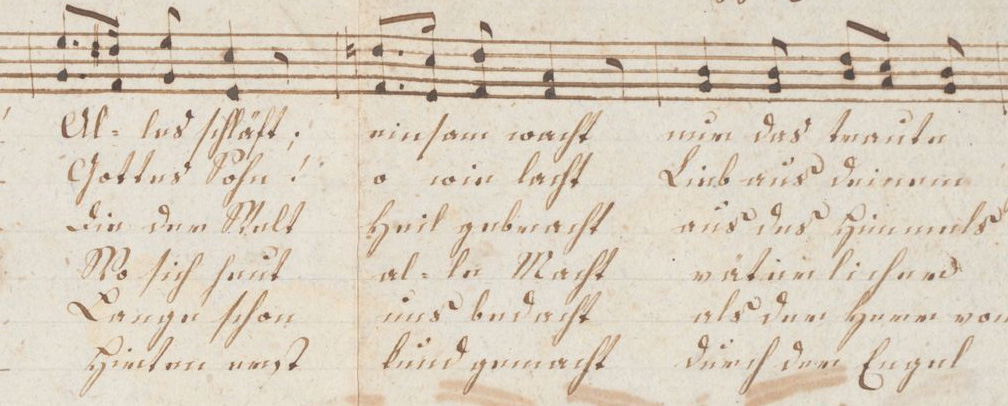 Al- les schläft; einsam wacht nur das traute
Gottes Sohn! o wie lacht Lieb aus deinem
Die der Welt Heil gebracht aus des Himmels
Wo sich heut al- le Macht väterlicher
Lange schon uns bedacht als der Herr von
Hirten erst kund gemacht durch der Engel